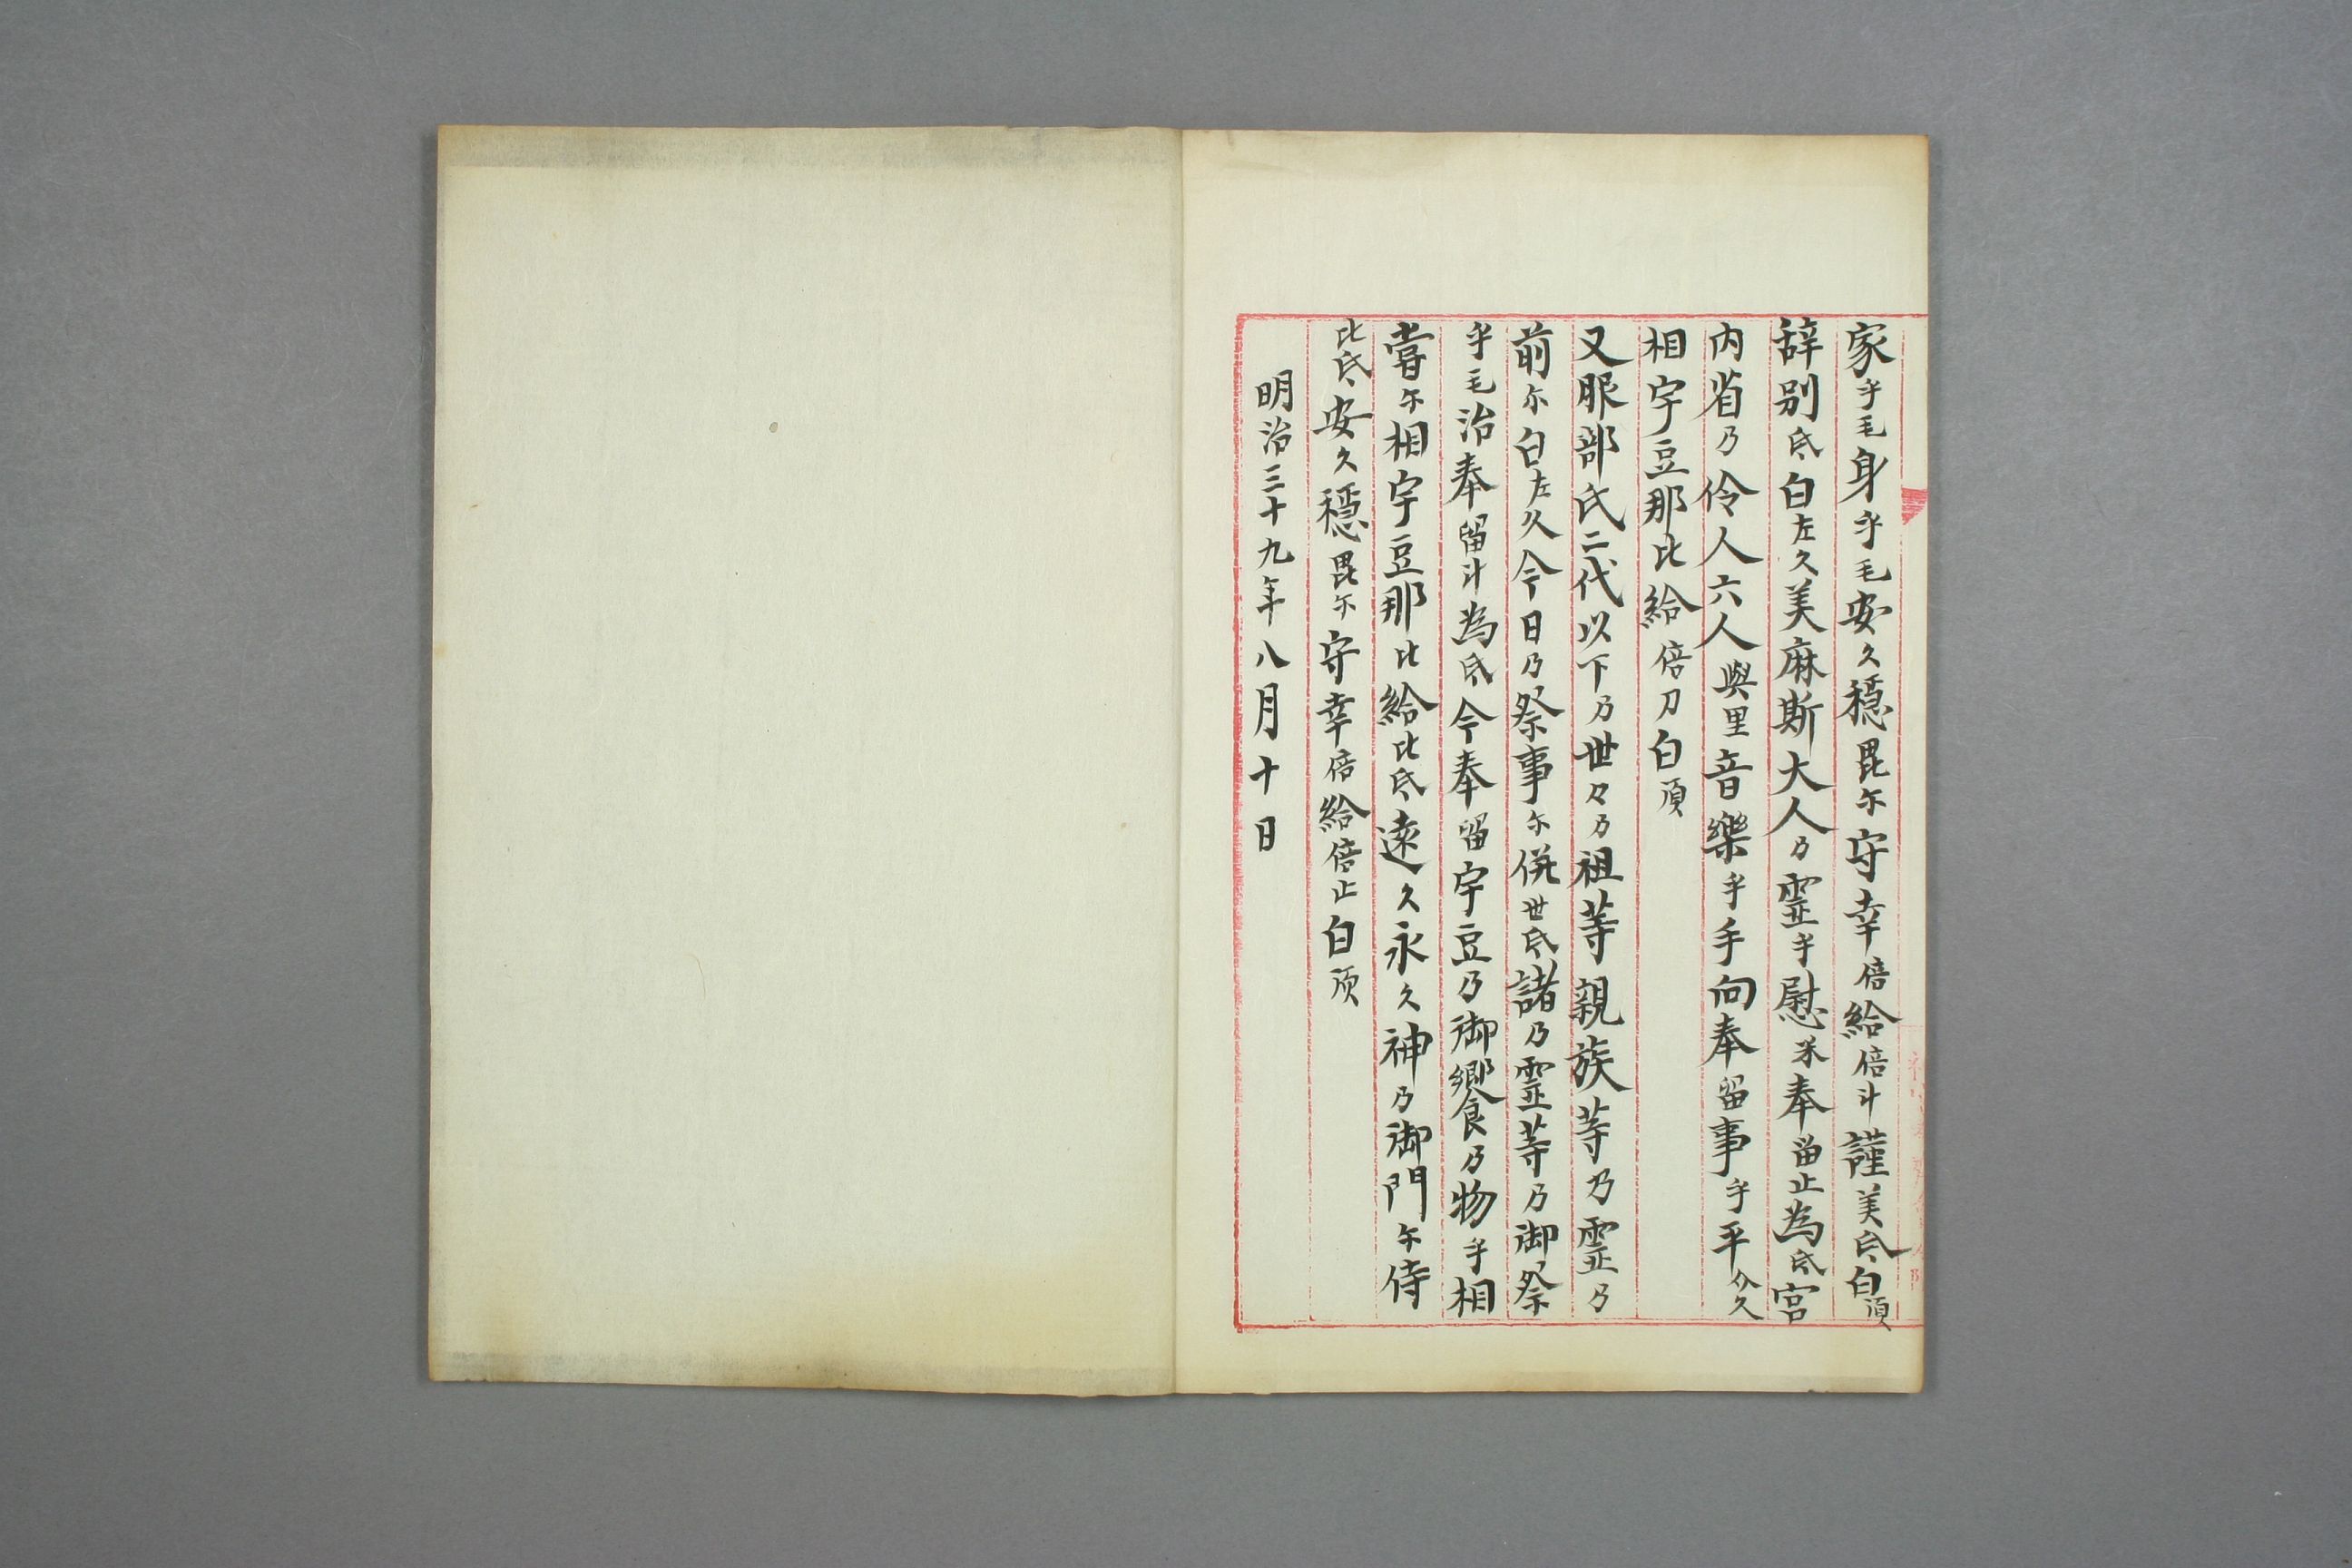 家乎毛身乎毛安久穏毘尓守幸倍給倍斗謹美氐白須
辞別氐白左久美麻斯大人乃霊乎慰米奉留止為氐宮
内省乃伶人六人與里音樂乎手向奉留事乎平介久
相宇豆那比給倍刀白須
又服部氏二代以下乃世々乃祖等親族等乃霊乃
前尓白左久今日乃祭事尓併世氐諸乃霊等乃御祭
乎毛治奉留斗為氐今奉留宇豆乃御饗乃物乎相
嘗尓相宇豆那比給比氐遠久永久神乃御門尓侍
比氐安久穏毘尓守幸倍給倍止白須
明治三十九年八月十日